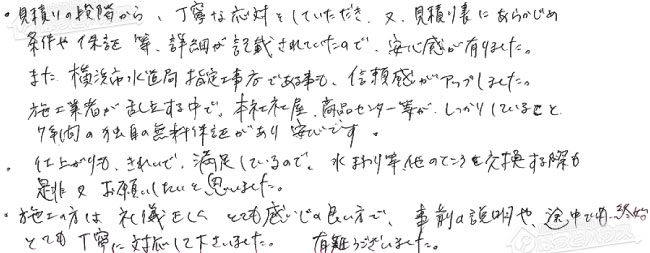 ・見積りの段階から、丁寧な応対をしていただき、又、見積り表にあらかじめ
条件や保証等、詳細が記載されていたので、安心感が有りました。
また横浜市水道局指定工事店である事も、信頼感がアップしました。
施工業者が乱立する中で、本社社屋、商品センター等が、しっかりしていること
7年間の独自の無料保証があり安心です。
・仕上がりも、きれいで、満足しているので、水まわり等他のところを交換する際も
是非又お願いしたいと思いました。
・施工の方は礼儀正しくとても感じの良い方で、事前の説明や、途中でも、終始
とても丁寧に対応して下さいました。有難うございました。